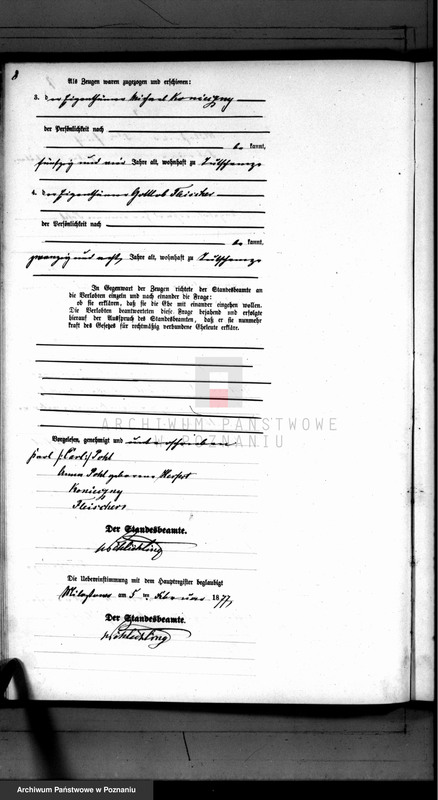 8
Als Zeugen waren zugezogen und erschienen:
3. der Eigenthümer Michael Konieczny
der Persönlichkeit nach
be kannt,
fünfzig und Jahre alt, wohnhaft zu
4. der Eigenthümer Gottlob Fleischer
der Persönlichkeit nach
be kannt,
zwanzig und acht Jahre alt, wohnhaft zu
In Gegenwart der Zeugen richtete der Standesbeamte an
die Verlobten einzeln und nach einander die Frage:
ob sie erklären, daß sie die Ehe mit einander eingehen wollen.
Die Verlobten beantworteten diese Frage bejahend und erfolgte
hierauf der Ausspruch des Standesbeamten, daß er sie nunmehr
kraft des Gesetzes für rechtmäßig verbundene Eheleute erkläre.
ARCHIWUM PAŃSTWOWE
W POZNANIU
Vorgelesen, genehmigt und unterschrieben
Karl (Carl) Pohl
Anna Pohl geborene
Konieczny
Fleischer
Der Standesbeamte.
Die Uebereinstimmung mit dem Hauptregister beglaubigt
am 5 ten Februar 1877
Der Standesbeamte.
Archiwum Państwowe w Poznaniu